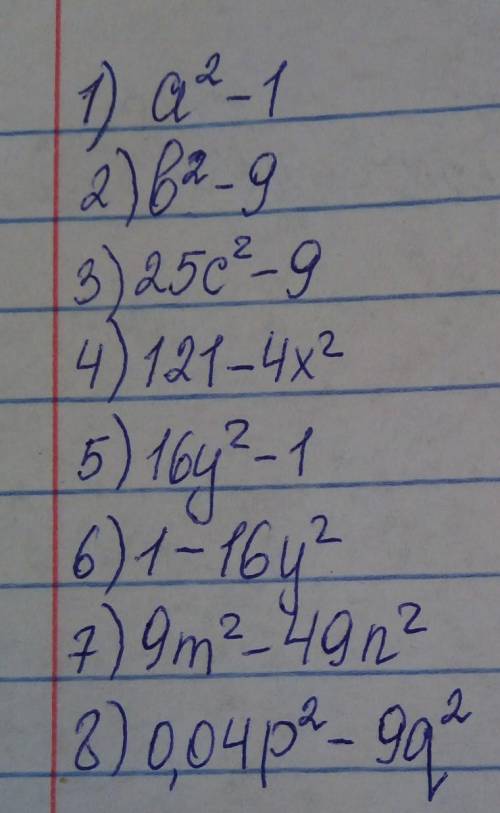 1) a² - 1
2) b² - 9
3) 25c² - 9
4) 121 - 4x²
5) 16y² - 1
6) 1 - 16y²
7) 9m² - 49n²
8) 0,04p² - 9q²